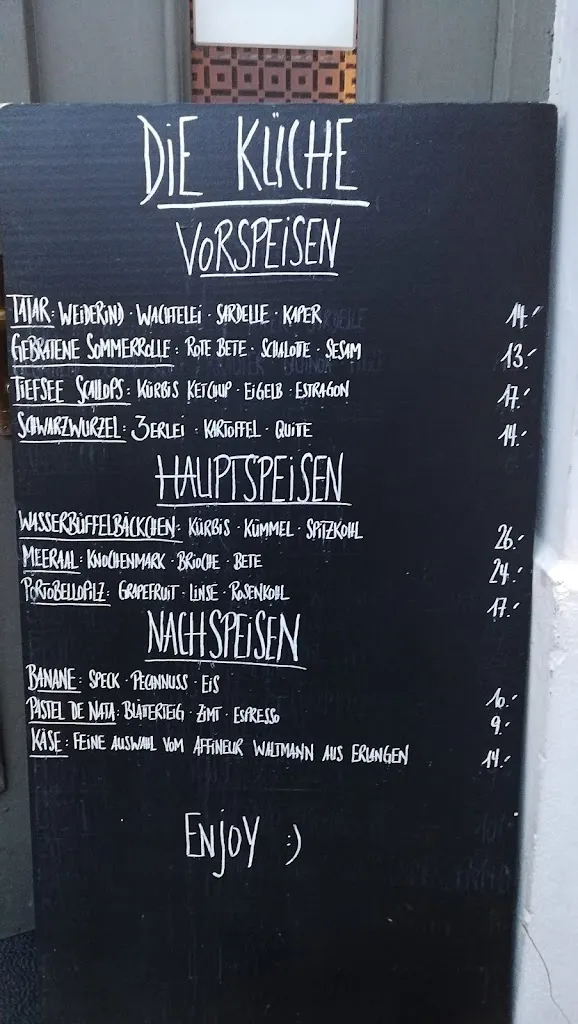 DIE KÜCHE
VORSPEISEN
TATAR: WEIDERIND · WACHTELEI · SARDELLE · KAPER 14.-
GEBRATENE SOMMERROLLE: ROTE BETE · SCHALOTTE · SESAM 13.-
TIEFSEE SCALLOPS: KÜRBIS KETCHUP · EIGELB · ESTRAGON 17.-
SCHWARZWURZEL: 3ERLEI · KARTOFFEL · QUITE 14.-
HAUPTSPEISEN
WASSERBÜFFELBÄCKCHEN: KÜRBIS · KÜMMEL · SPITZKOHL 26.-
MEERAAL: KNOCHENMARK · BRIOCHE · BETE 24.-
PORTOBELLOPILZ: GRAPEFRUIT · LINSE · ROSENKOHL 17.-
NACHSPEISEN
BANANE: SPECK · PECANNUSS · EIS 10.-
PASTEL DE NATA: BLÄTTERTEIG · ZIMT · ESPRESSO 9.-
KÄSE: FEINE AUSWAHL VOM AFFINEUR WALTMANN AUS ERLANGEN 14.-
ENJOY :)